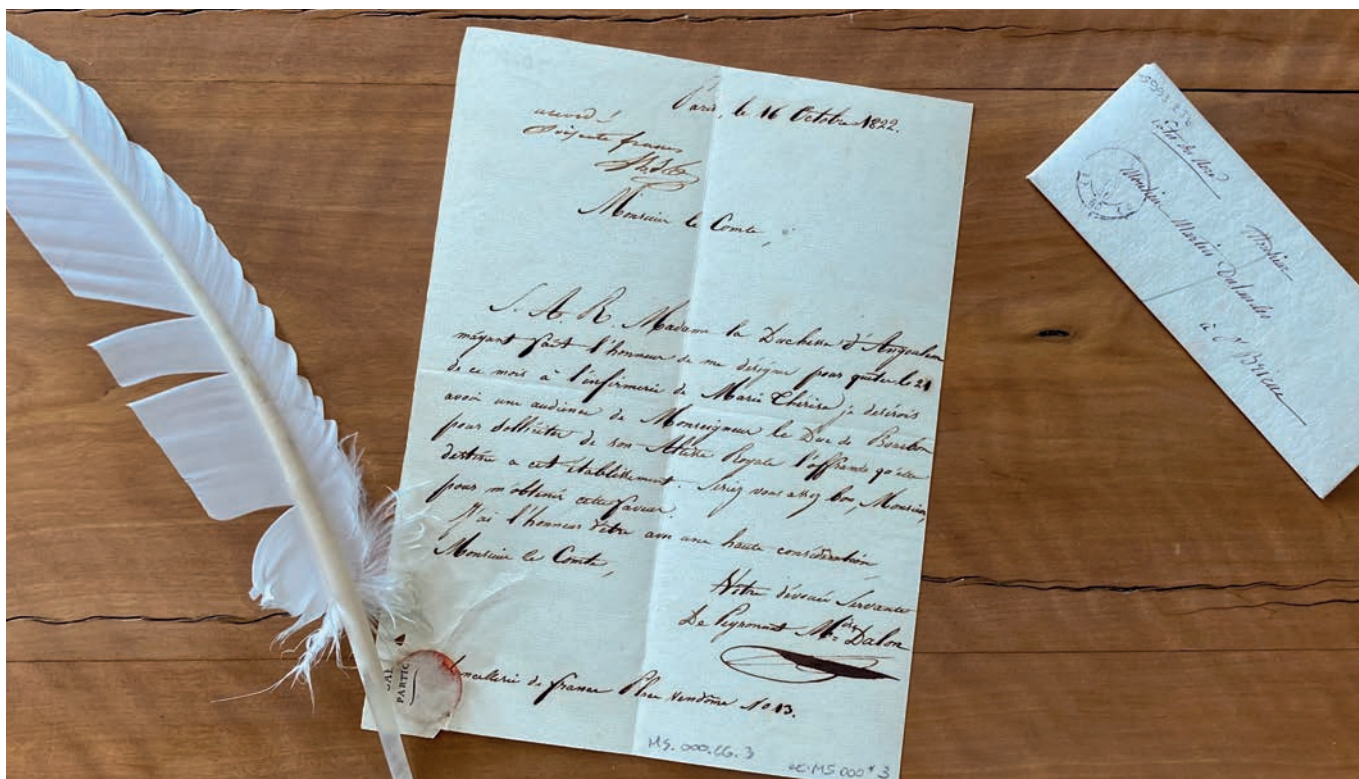 Paris, le 16 Octobre 1822.
accordé
Soixante francs
Monsieur le Comte,
S. A. R. Madame la Duchesse d'Angoulem
m'ayant fait l'honneur de me désigner pour quêter le 21
de ce mois à l'infirmerie de Marie Thérèse, je desirois
avoir une audience de Monseigneur le Duc de Bourbon
pour solliciter de son Altesse Royale l'offrande qu'elle
destine a cet établissement. Seriez vous assez bon, Monsieur,
pour m'obtenir cette faveur.
J'ai l'honneur d'être avec une haute considération
Monsieur le Comte,
Votre dévouée Servante
De Peyronnet Mise Dalon
Chancellerie de france Place vendôme No 13.
PARTIC
MS.000.CG.3
MS 000* 3
Côtes du Nord
Monsieur
Monsieur Martin Dalandes
à St Brieuc